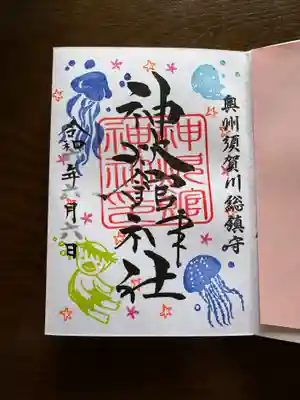 奥州須賀川総鎮守
神炊館神社
神炊館
神社印
令和年六月六日